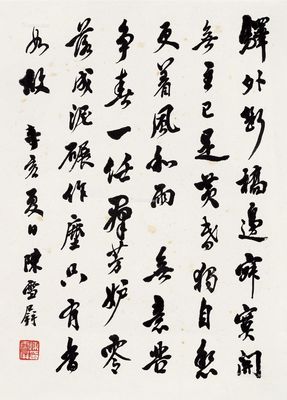 驛外斷橋邊寂寞開
無主已是黃昏獨自愁
更着風和雨 無意苦
争春一任羣芳妒零
落成泥碾作塵只有香
如故 辛亥夏日陳雪屏